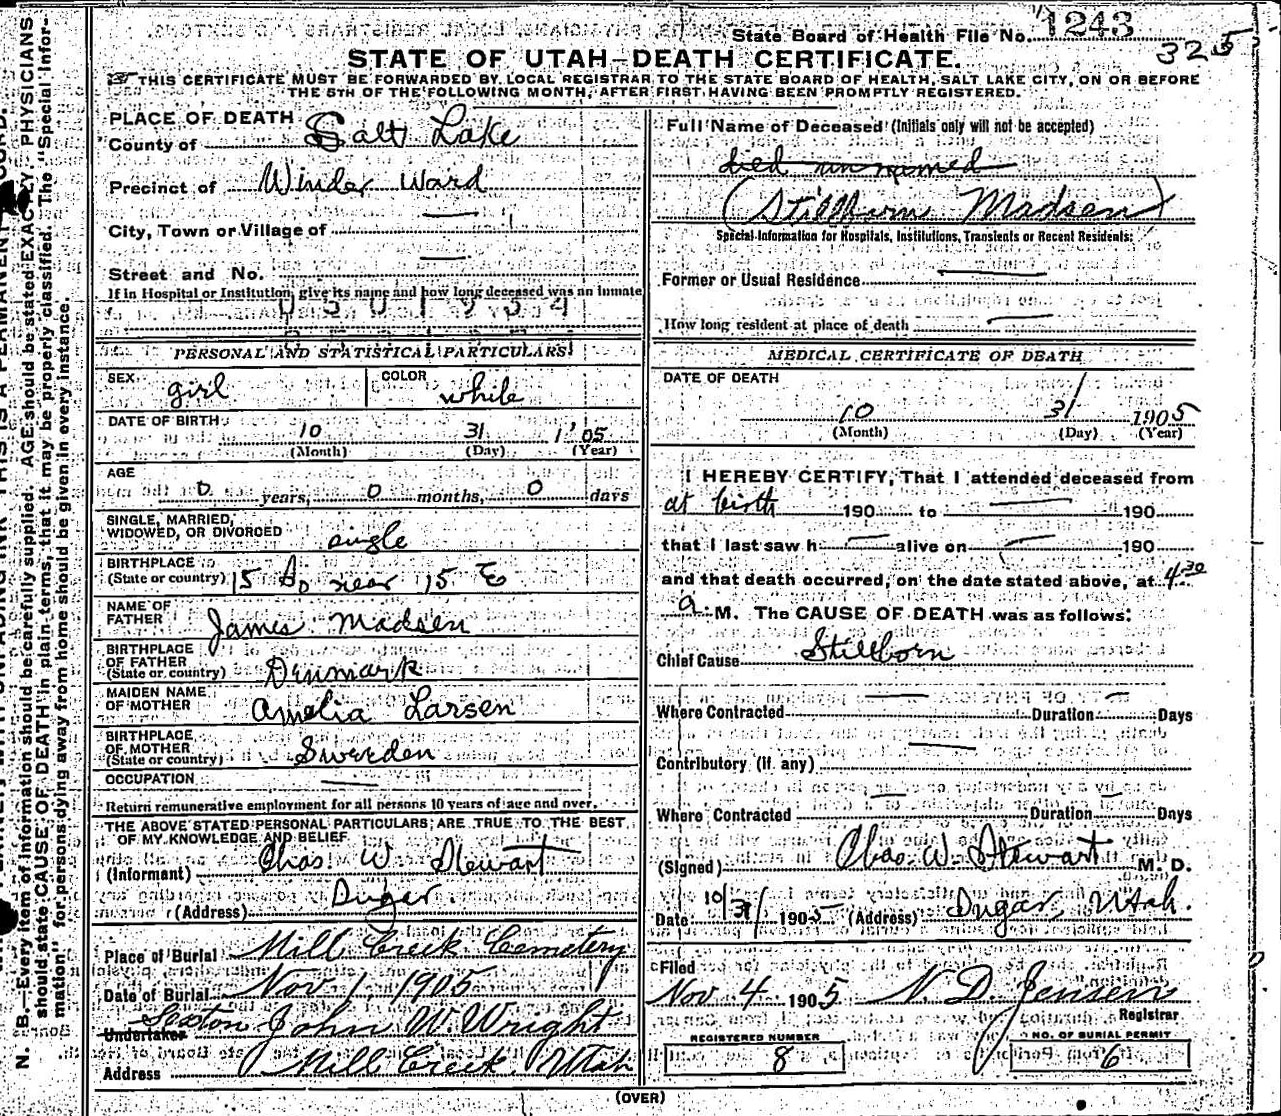 State Board of Health File No. 1243
325
STATE OF UTAH—DEATH CERTIFICATE.
THIS CERTIFICATE MUST BE FORWARDED BY LOCAL REGISTRAR TO THE STATE BOARD OF HEALTH, SALT LAKE CITY, ON OR BEFORE
THE 5TH OF THE FOLLOWING MONTH, AFTER FIRST HAVING BEEN PROMPTLY REGISTERED.
PLACE OF DEATH
County of Salt Lake
Precinct of Winder Ward
City, Town or Village of —
Street and No. —
If in Hospital or Institution, give its name and how long deceased was an inmate
PERSONAL AND STATISTICAL PARTICULARS
SEX girl COLOR white
DATE OF BIRTH 10 31 1'05
(Month) (Day) (Year)
AGE
0 years, 0 months, 0 days
SINGLE, MARRIED,
WIDOWED, OR DIVORCED single
BIRTHPLACE
(State or country) 15 So near 15 E
NAME OF
FATHER James Madsen
BIRTHPLACE
OF FATHER
(State or country) Dinmark
MAIDEN NAME
OF MOTHER Amelia Larsen
BIRTHPLACE
OF MOTHER
(State or country) Sweeden
OCCUPATION —
Return remunerative employment for all persons 10 years of age and over.
THE ABOVE STATED PERSONAL PARTICULARS ARE TRUE TO THE BEST
OF MY KNOWLEDGE AND BELIEF
(Informant) Chas W Stewart
(Address)
Place of Burial Mill Creek Cemetery
Date of Burial Nov 1, 1905
Undertaker Sexton John W. Wright
Address Mill Creek Utah
Full Name of Deceased (Initials only will not be accepted)
died unnamed
(Stillborn Madsen)
Special Information for Hospitals, Institutions, Transients or Recent Residents:
Former or Usual Residence —
How long resident at place of death —
MEDICAL CERTIFICATE OF DEATH
DATE OF DEATH
10 31 1905
(Month) (Day) (Year)
I HEREBY CERTIFY, That I attended deceased from
at birth 190 to — 190
that I last saw h — alive on — 190
and that death occurred, on the date stated above, at 4 30
a. M. The CAUSE OF DEATH was as follows:
Chief Cause Stillborn
Where Contracted — Duration — Days
Contributory (if any) —
Where Contracted — Duration — Days
(Signed) Chas. W. Stewart M. D.
Date 10/31/ 1905 (Address) Utah.
Filed
Nov 4 1905 N. D. Jensen
Registrar
REGISTERED NUMBER
8
NO. OF BURIAL PERMIT
6
(OVER)
N. B.—Every item of information should be carefully supplied. AGE should be stated EXACTLY. PHYSICIANS
should state CAUSE OF DEATH in plain terms, that it may be properly classified. The "Special Infor-
mation" for persons dying away from home should be given in every instance.